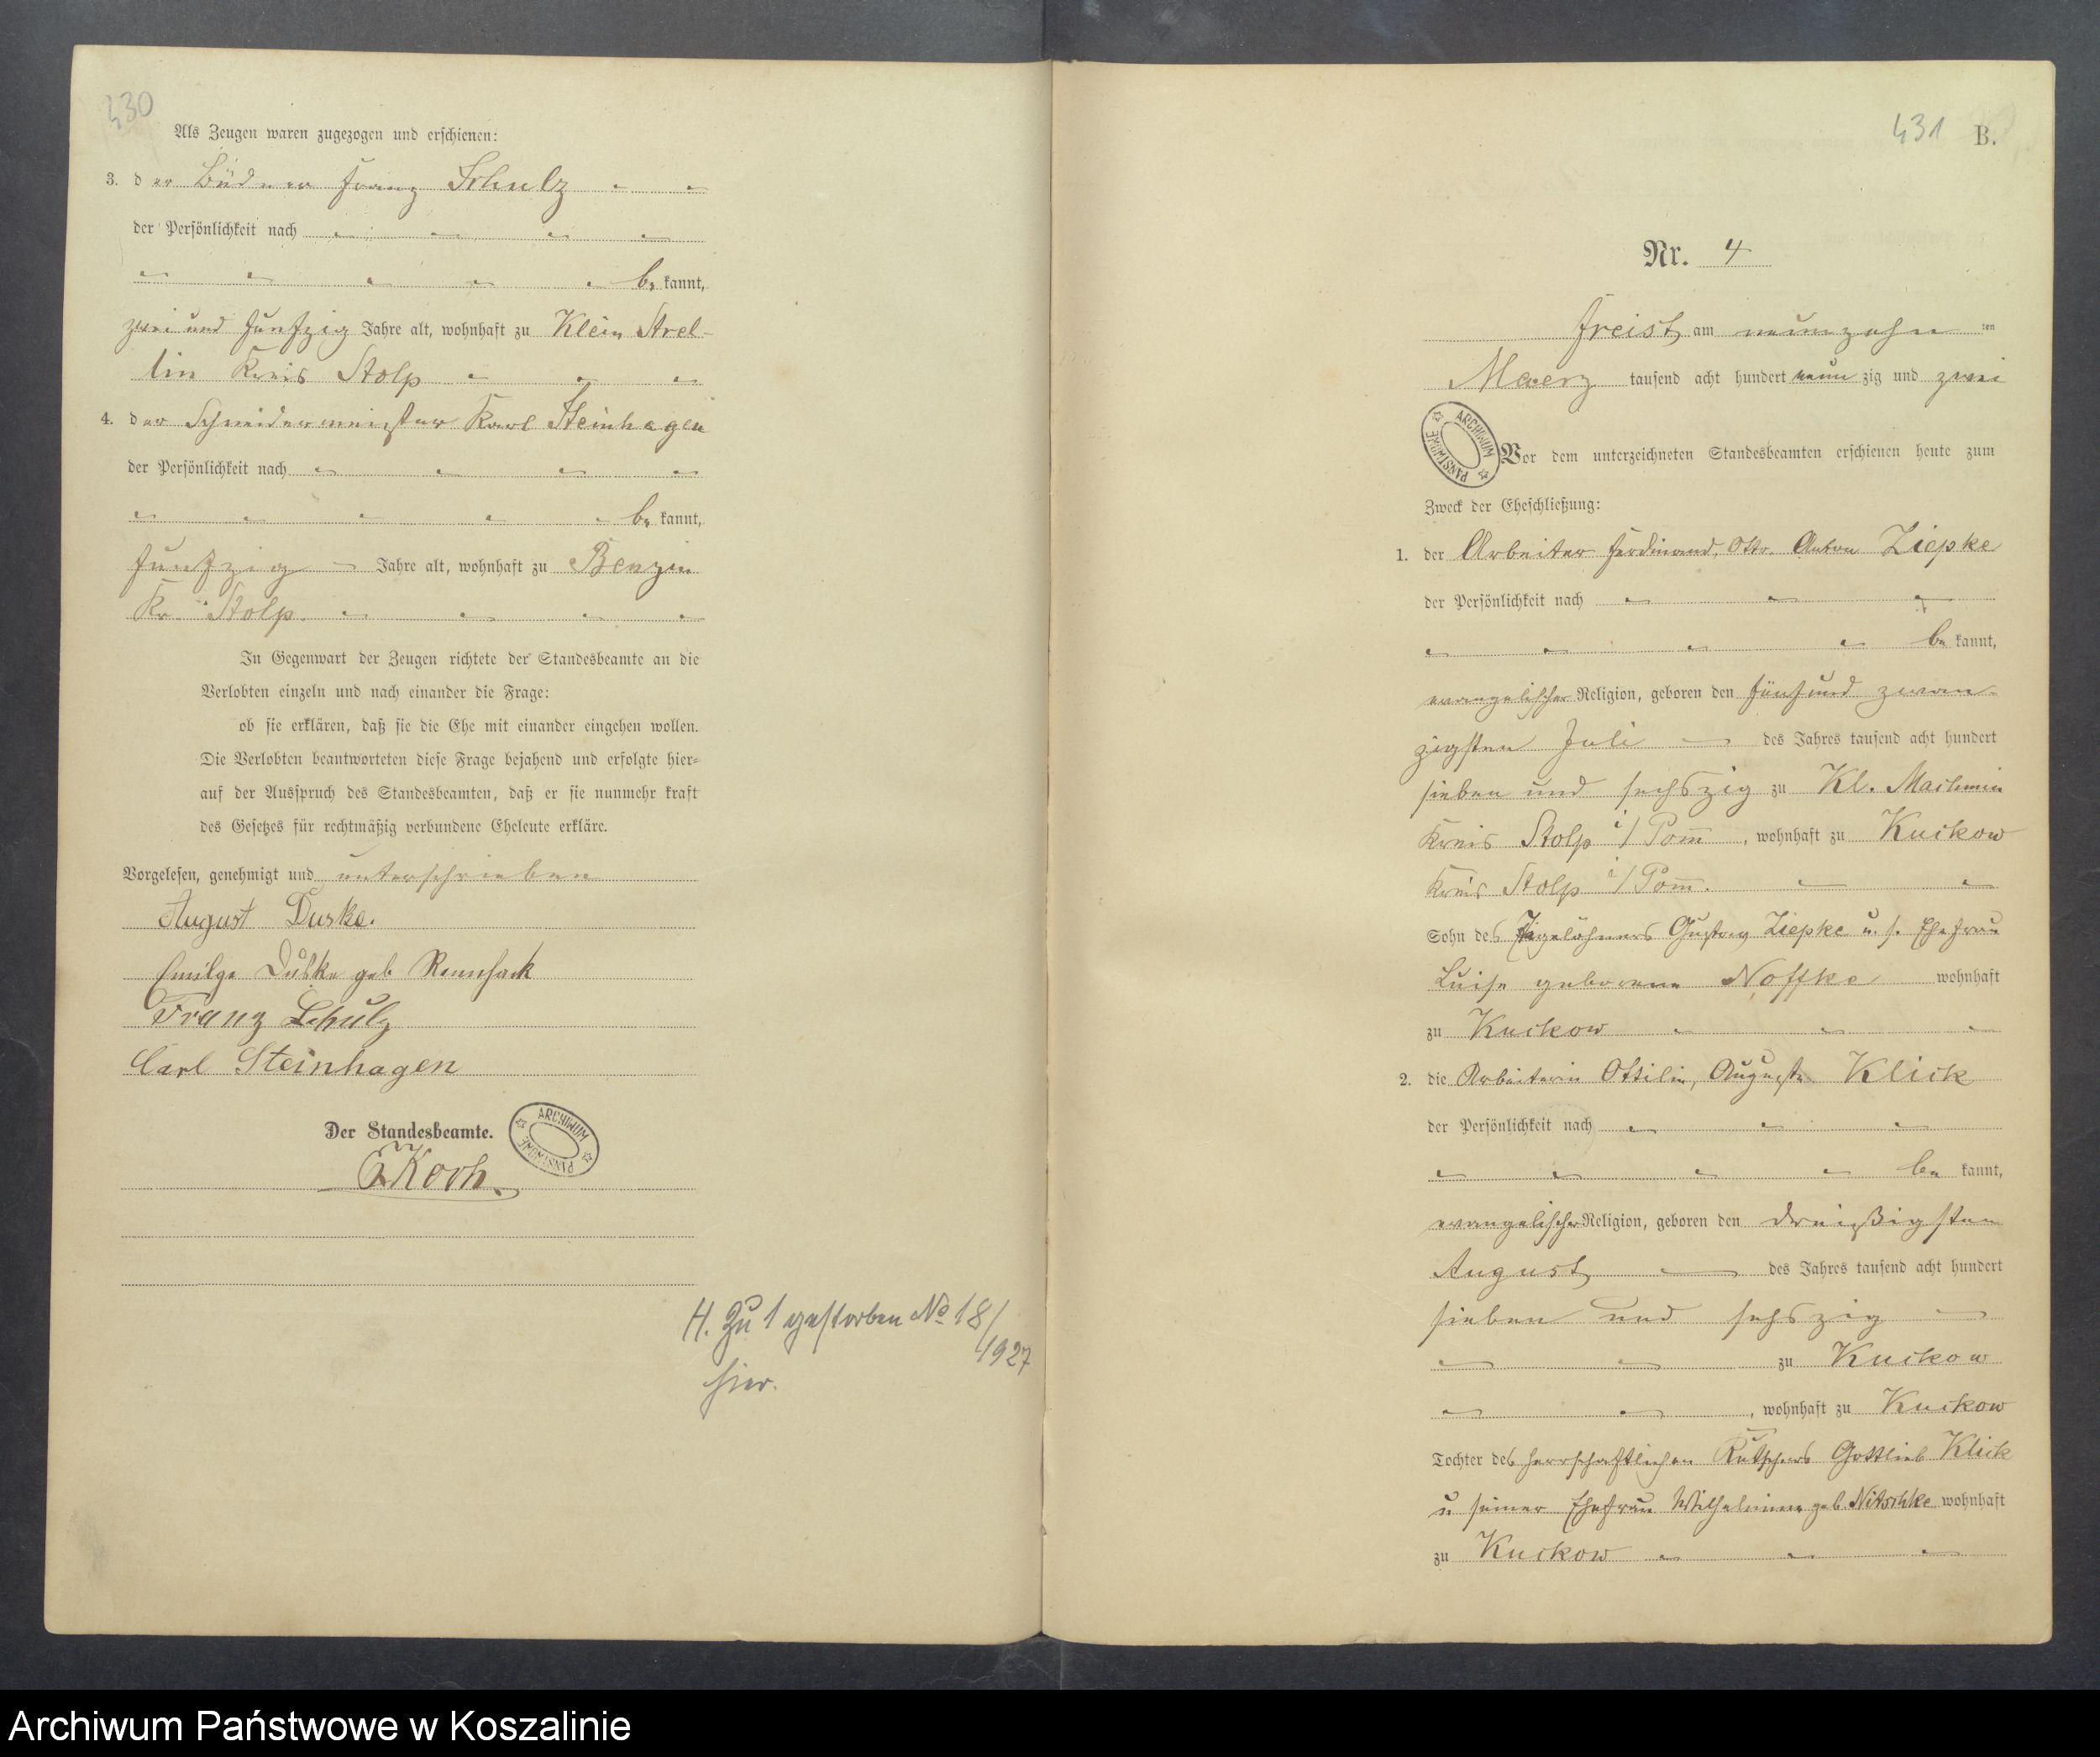 430
Als Zeugen waren zugezogen und erschienen:
3. der Büdner Franz Schulz
der Persönlichkeit nach
be kannt,
zwei und funfzig Jahre alt, wohnhaft zu Klein Strel-
lin Kreis Stolp
4. der Schneidermeister Karl Steinhagen
der Persönlichkeit nach
be kannt,
funfzig Jahre alt, wohnhaft zu Benzin
Kr. Stolp.
In Gegenwart der Zeugen richtete der Standesbeamte an die
Verlobten einzeln und nach einander die Frage:
ob sie erklären, daß sie die Ehe mit einander eingehen wollen.
Die Verlobten beantworteten diese Frage bejahend und erfolgte hier=
auf der Ausspruch des Standesbeamten, daß er sie nunmehr kraft
des Gesetzes für rechtmäßig verbundene Eheleute erkläre.
Vorgelesen, genehmigt und unterschrieben
August Duske.
Duske geb
Franz Schulz
Carl Steinhagen
Der Standesbeamte.
ARCHIWUM PAŃSTWOWE
Koch.
H. Zu 1 gestorben No 18/
1927
hier.
431 B.
Nr. 4
Freist am neunzehn ten
Maerz tausend acht hundert neun zig und zwei
ARCHIWUM PAŃSTWOWE
Vor dem unterzeichneten Standesbeamten erschienen heute zum
Zweck der Eheschließung:
1. der Arbeiter Ferdinand, Otto Anton Ziepke
der Persönlichkeit nach
be kannt,
evangelischer Religion, geboren den fünf und zwan-
zigsten Juli des Jahres tausend acht hundert
sieben und sechszig zu Kl. Machmin
Kreis Stolp i/Pom̅, wohnhaft zu Kuckow
Kreis Stolp i/Pom̅.
Sohn des Tagelöhners Gustav Ziepke u. s. Ehefrau
Luise geborene Noffke wohnhaft
zu Kuckow
2. die Arbeiterin Ottilie, Auguste Klick
der Persönlichkeit nach
be kannt,
evangelischer Religion, geboren den dreißigsten
August des Jahres tausend acht hundert
sieben und sechszig
zu Kuckow
, wohnhaft zu Kuckow
Tochter des herrschaftlichen Kutschers Gottlieb Klick
u seiner Ehefrau Wilhelmine geb. Nitschke wohnhaft
zu Kuckow
Archiwum Państwowe w Koszalinie